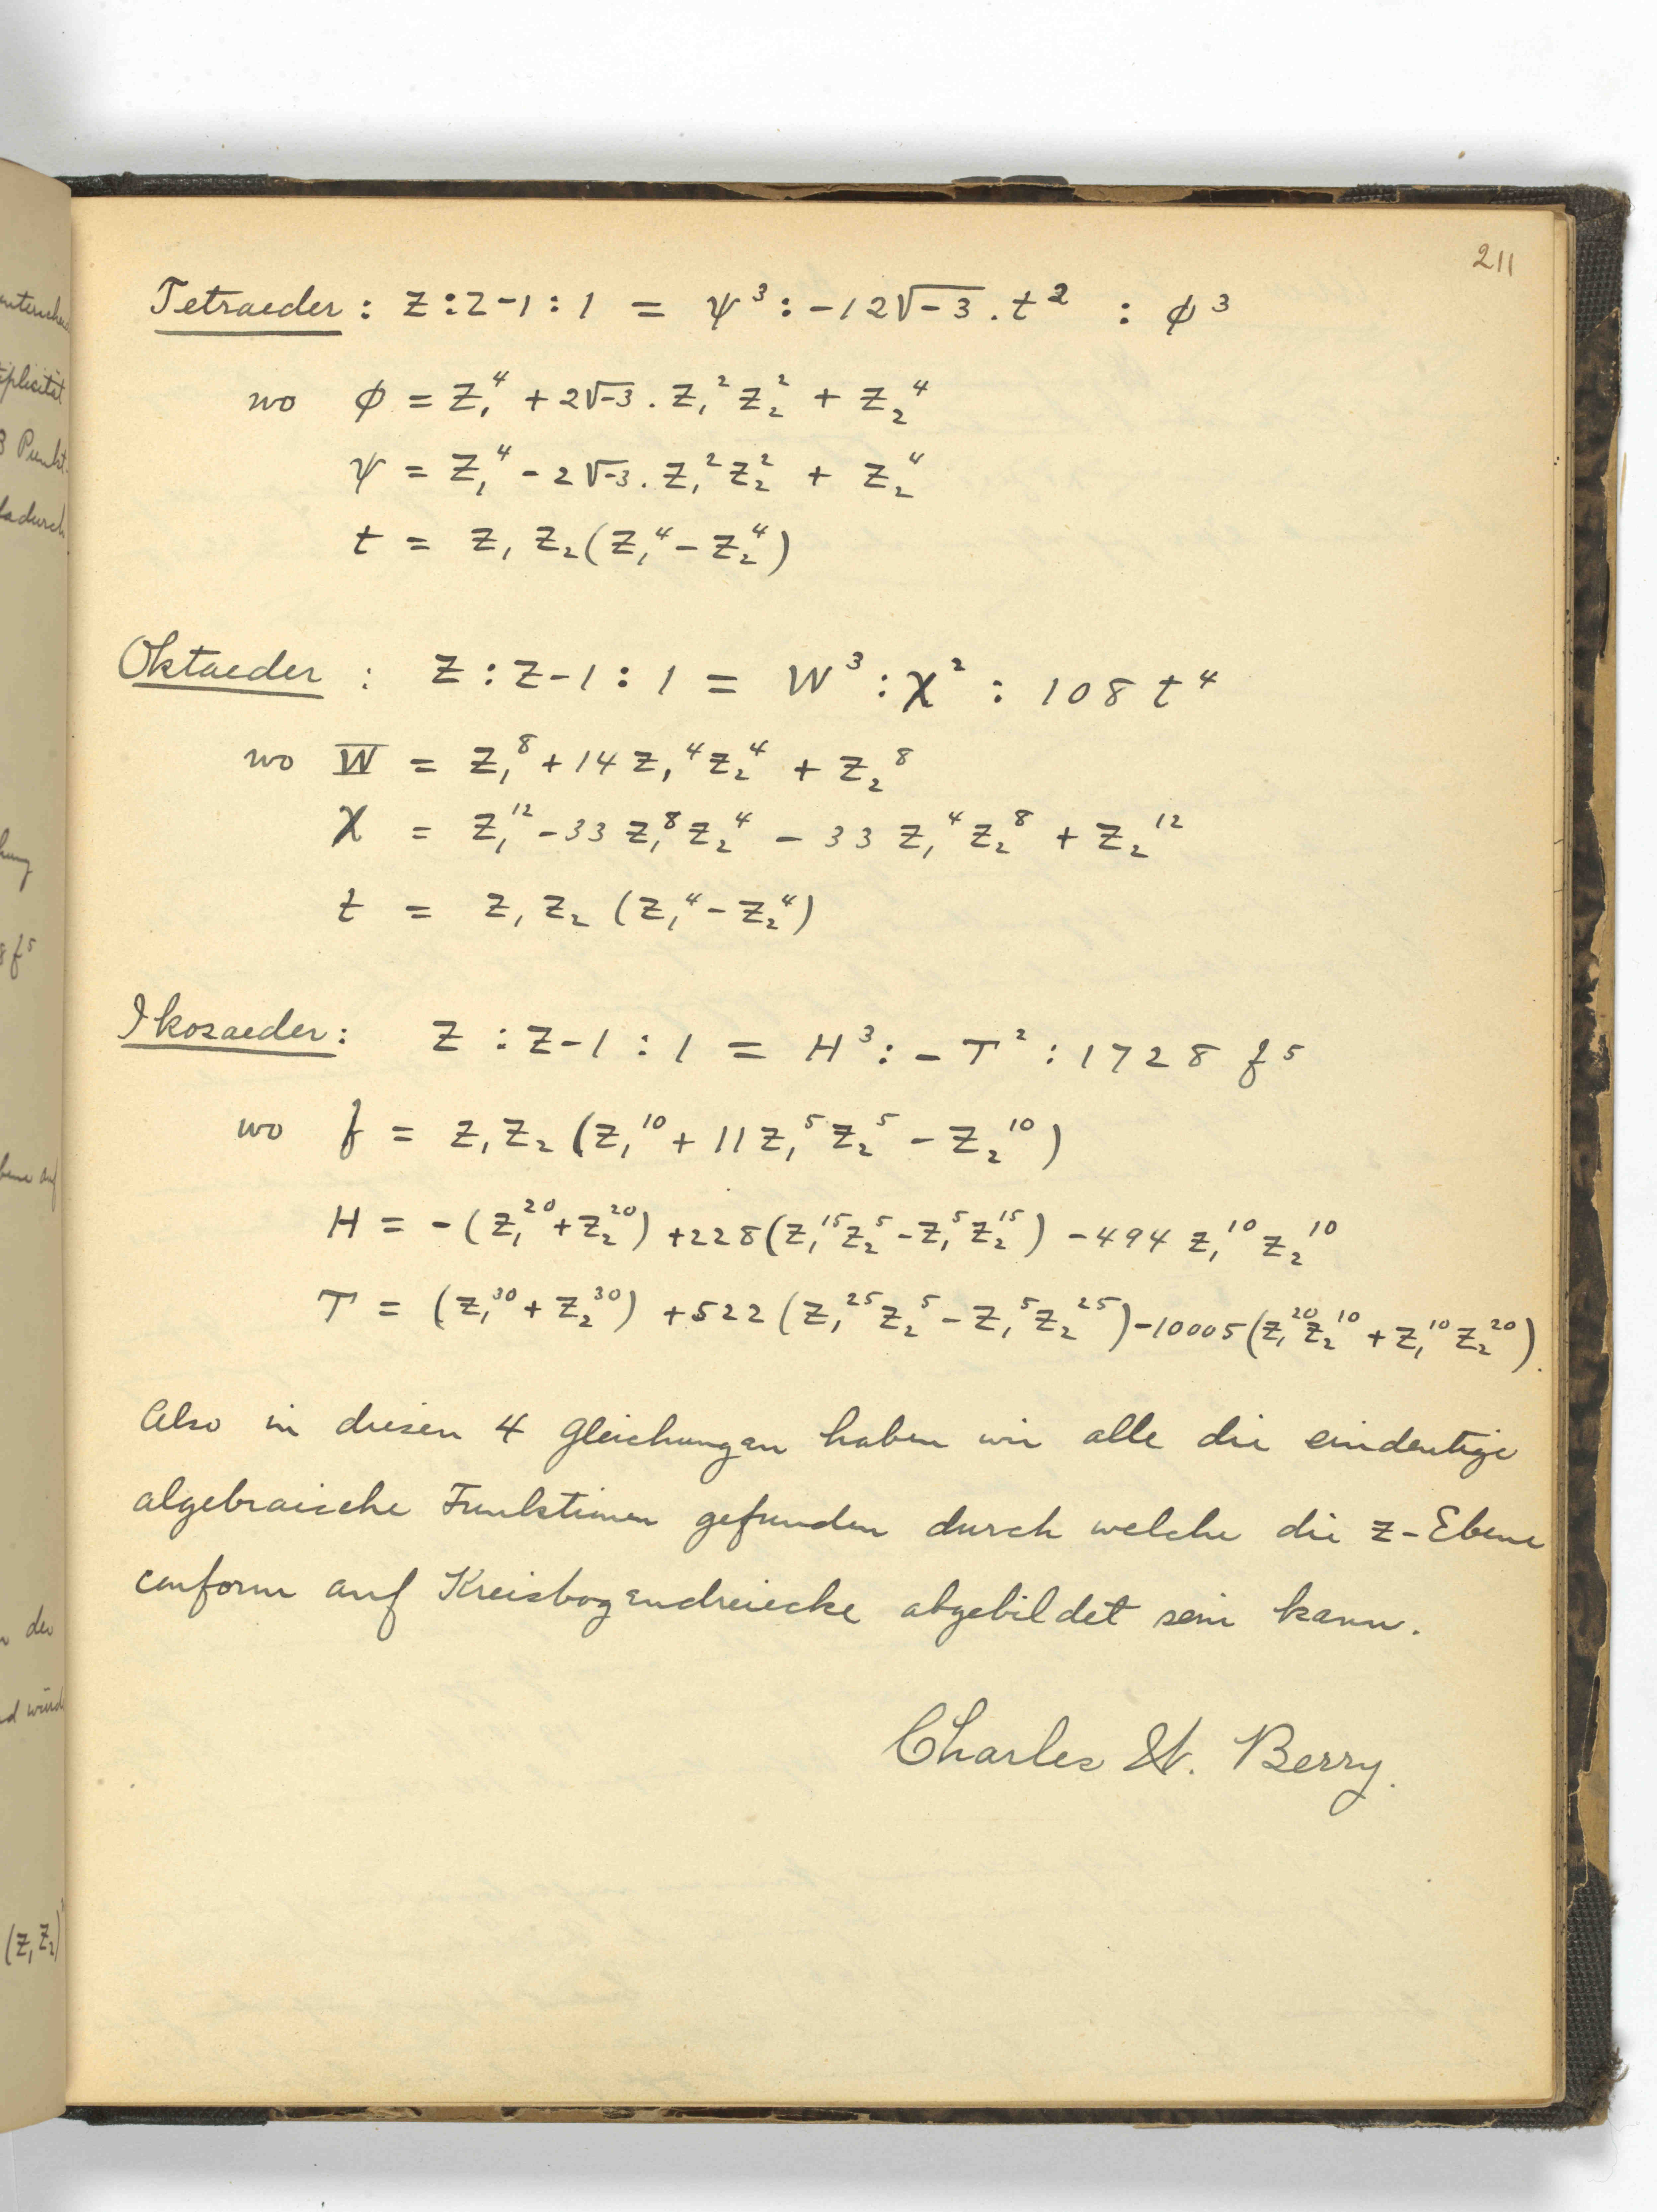 211
Tetraeder : Z : Z-1 : 1 = ψ³ : -12√-3 . t² : φ³
wo φ = z₁⁴ + 2√-3 . z₁² z₂² + z₂⁴
ψ = z₁⁴ - 2√-3 . z₁² z₂² + z₂⁴
t = z₁ z₂ (z₁⁴ - z₂⁴)
Oktaeder : Z : Z-1 : 1 = W³ : χ² : 108 t⁴
wo W = z₁⁸ + 14 z₁⁴ z₂⁴ + z₂⁸
χ = z₁¹² - 33 z₁⁸ z₂⁴ - 33 z₁⁴ z₂⁸ + z₂¹²
t = z₁ z₂ (z₁⁴ - z₂⁴)
Ikosaeder : Z : Z-1 : 1 = H³ : - T² : 1728 f⁵
wo f = z₁ z₂ (z₁¹⁰ + 11 z₁⁵ z₂⁵ - z₂¹⁰)
H = - (z₁²⁰ + z₂²⁰) + 228 (z₁¹⁵ z₂⁵ - z₁⁵ z₂¹⁵) - 494 z₁¹⁰ z₂¹⁰
T = (z₁³⁰ + z₂³⁰) + 522 (z₁²⁵ z₂⁵ - z₁⁵ z₂²⁵) - 10005 (z₁²⁰ z₂¹⁰ + z₁¹⁰ z₂²⁰).
Also in diesen 4 Gleichungen haben wir alle die eindeutige
algebraische Funktionen gefunden durch welche die z-Ebene
conform auf Kreisbogendreiecke abgebildet sein kann.
Charles W. Berry.
3 Punkt
dadurch
f⁵
(z₁ z₂)